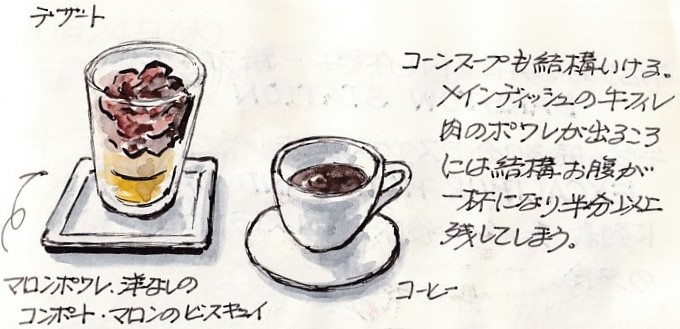 デザート
コーンスープも結構いける。
メインディッシュの牛フィレ
肉のポワレが出るころ
には結構お腹が
一杯になり半分以上
残してしまう。
マロンポワレ、洋なしの
コンポート・マロンのビスキュイ
コーヒー